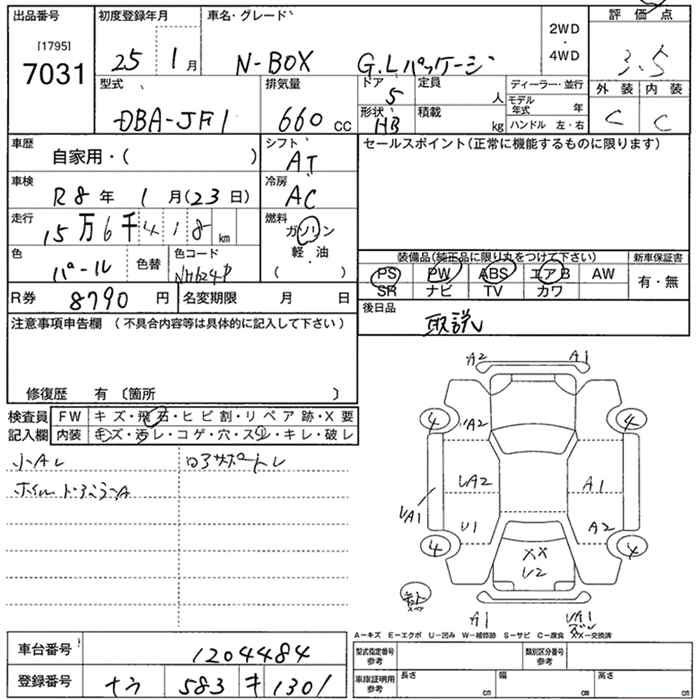 出品番号
[1795]
7031
初度登録年月
25 1月
車名・グレード
N-BOX G.Lパッケージ
2WD
・
4WD
評価点
3.5
外装 内装
C C
型式
DBA-JF1
排気量
660 cc
ドア
5
形状
HB
定員
人
積載
kg
ディーラー・並行
モデル年式 年
ハンドル 左・右
車歴
自家用・( )
シフト
AT
セールスポイント(正常に機能するものに限ります)
車検
R8年 1月(23日)
冷房
AC
走行
15万6千418km
燃料
ガソリン
軽・油
・
( )
色
パール
色替
色コード
NH624P
装備品(純正品に限り丸をつけて下さい)
新車保証書
PS PW ABS エアB AW
SR ナビ TV カワ
有・無
R券 8790円
名変期限 月 日
後日品
取説
注意事項申告欄 (不具合内容等は具体的に記入して下さい)
修復歴 有 〔箇所 〕
検査員記入欄
FW キズ・飛石・ヒビ割・リペア跡・X要
内装 キズ・汚レ・コゲ・穴・スレ・キレ・破レ
小Aレ
A2 A1
4 4
A2
UA2 A1
UA1
U1 A2
4 4
XX
U2
A1 UA1
A−キズ E−エクボ U−凹み W−補修跡 S−サビ C−腐食 XX−交換済
車台番号
1204484
登録番号
583 キ 1301
型式指定番号
参考
類別区分番号
参考
車庫証明用
参考
長さ cm
幅 cm
高さ cm